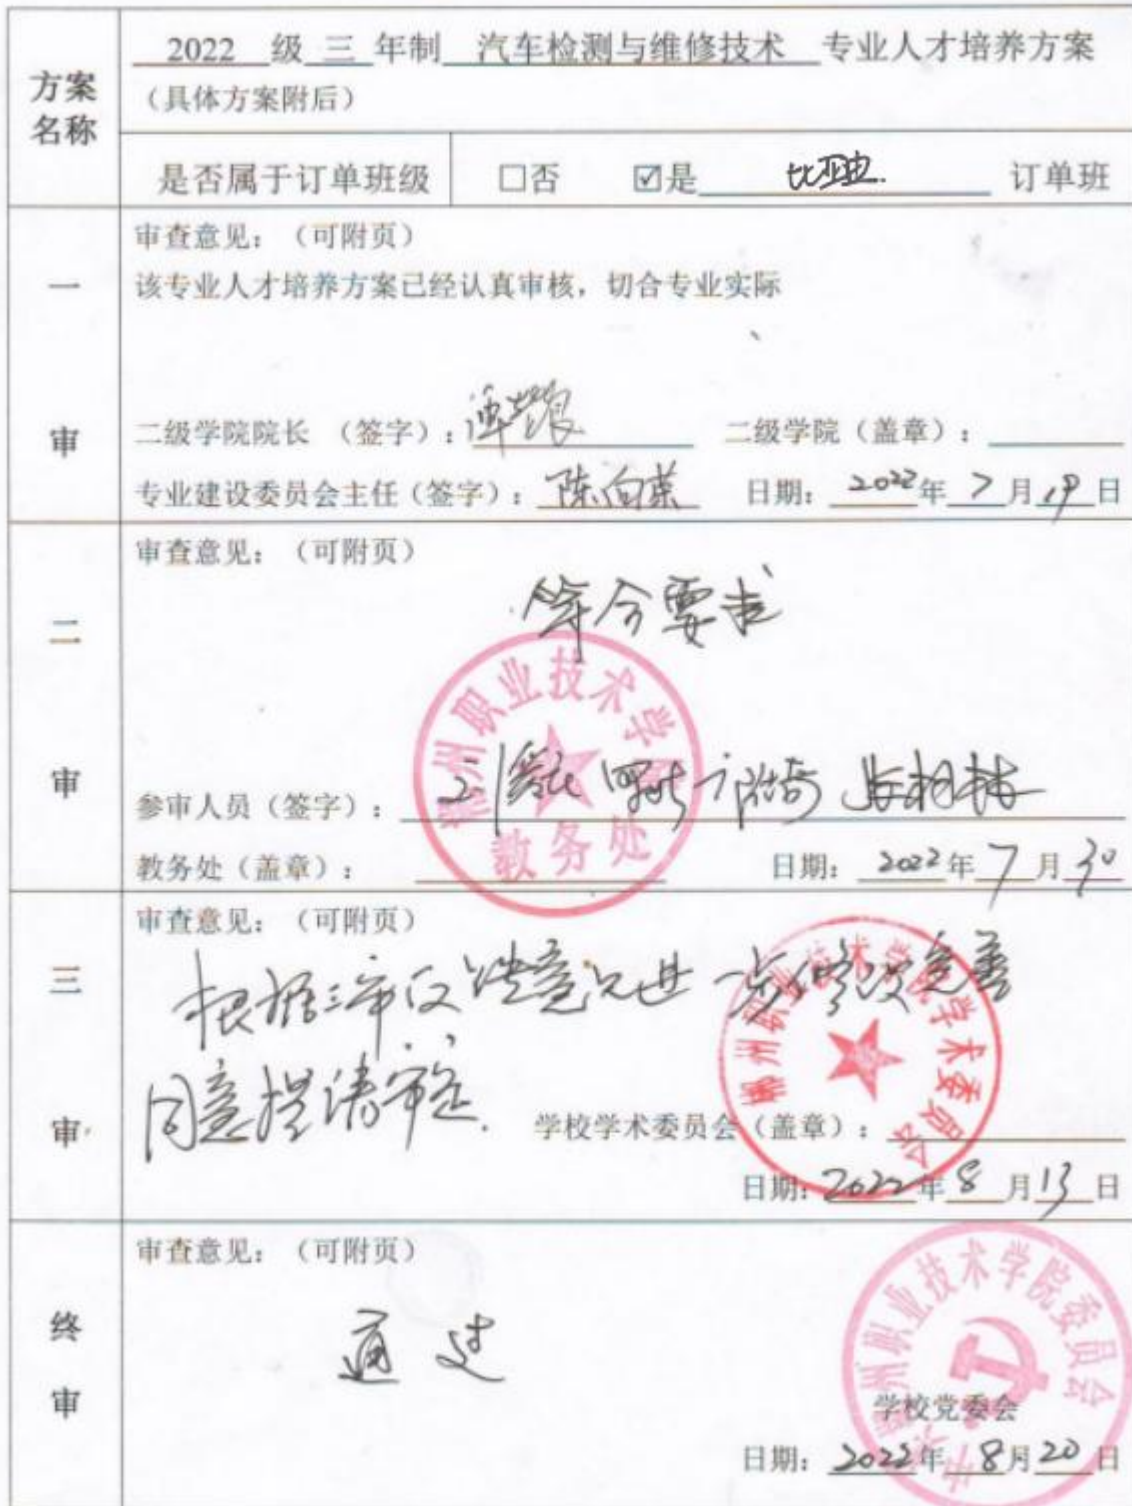 方案名称
2022 级 三 年制 汽车检测与维修技术 专业人才培养方案
（具体方案附后）
是否属于订单班级 □否 ☑是 比亚迪. 订单班
一审
审查意见：（可附页）
该专业人才培养方案已经认真审核，切合专业实际
二级学院院长 （签字）： 二级学院（盖章）：
专业建设委员会主任（签字）： 陈向荣 日期： 2022年 7 月 19 日
二审
审查意见：（可附页）
符合要求
郴州职业技术学院
教务处
参审人员（签字）：
教务处（盖章）： 日期： 2022年 7 月 30
三审
审查意见：（可附页）
根据三审反馈意见进一步修改完善
同意提请审定.
郴州职业技术学院学术委员会
学校学术委员会（盖章）：
日期：2022年 8 月 13 日
终审
审查意见：（可附页）
通过
郴州职业技术学院委员会
学校党委会
日期： 2022年 8月 20 日